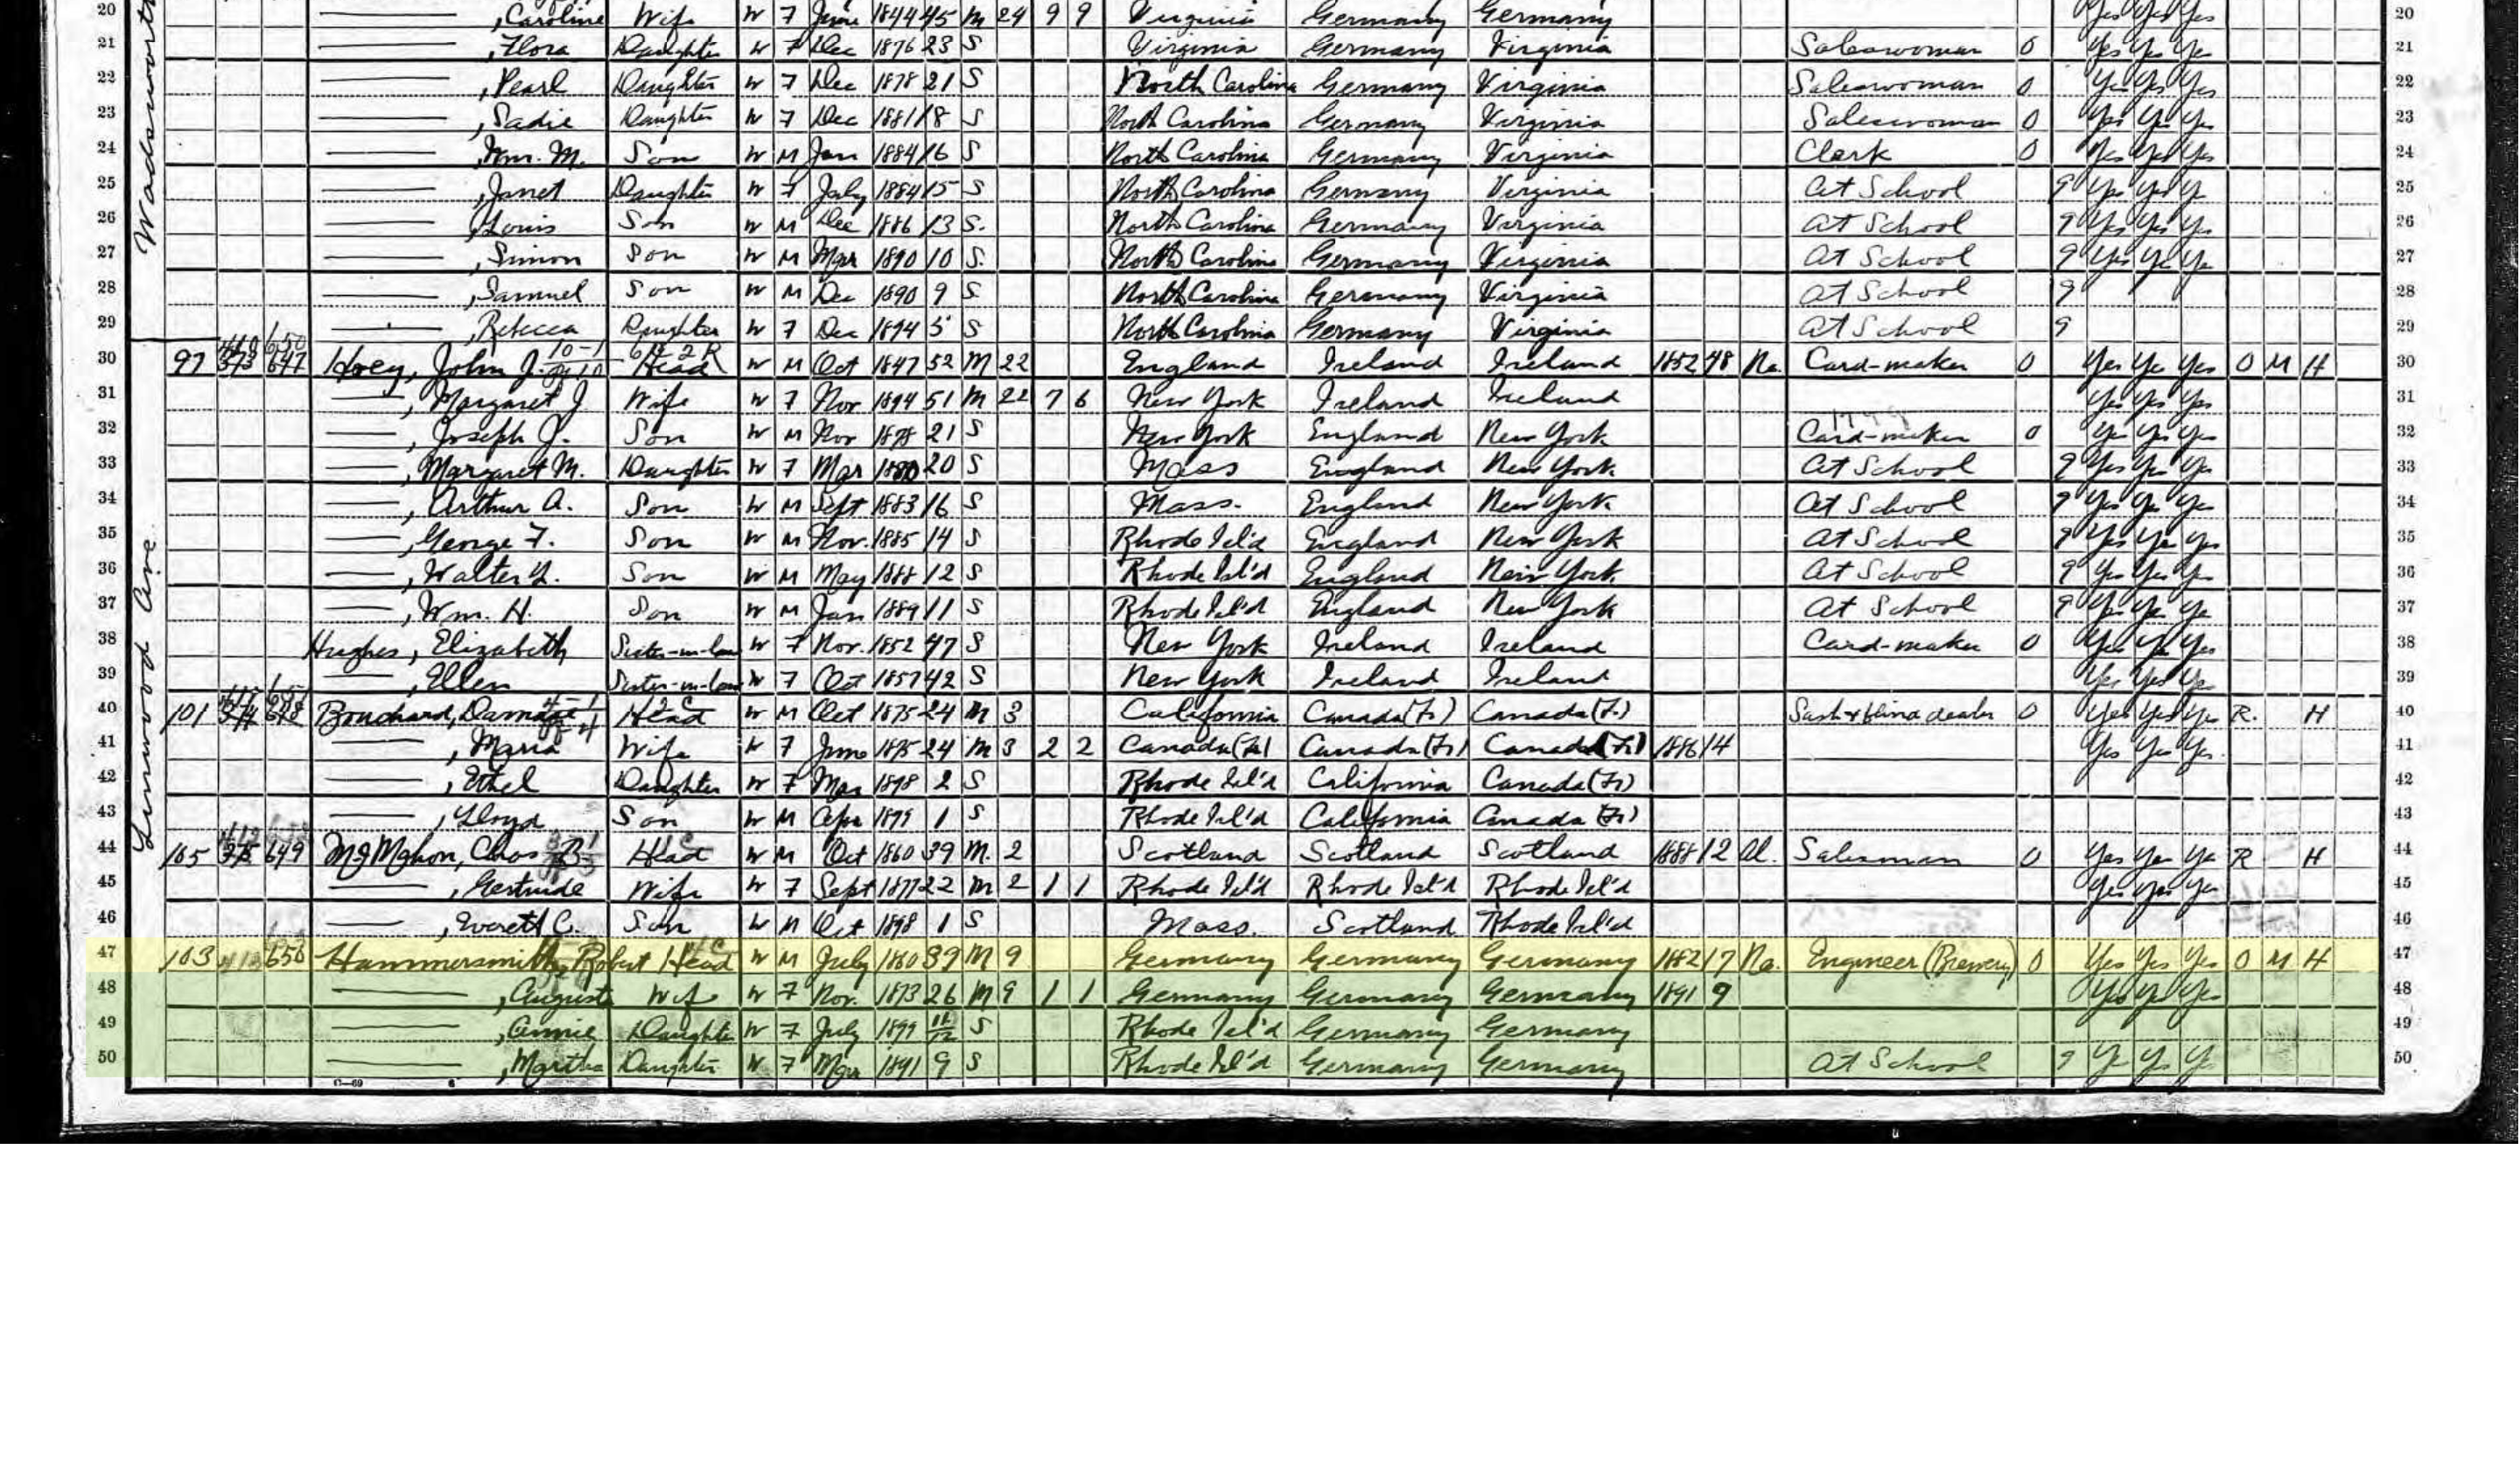 Wadsworth
Linwood Ave.
20 , Caroline Wife W F June 1844 45 M 24 9 9 Virginia Germany Germany Yes Yes Yes 20
21 , Flora Daughter W F Dec 1876 23 S Virginia Germany Virginia Saleswoman 0 Yes Yes Yes 21
22 , Pearl Daughter W F Dec 1878 21 S North Carolina Germany Virginia Saleswoman 0 Yes Yes Yes 22
23 , Sadie Daughter W F Dec 1881 18 S North Carolina Germany Virginia Saleswoman 0 Yes Yes Yes 23
24 , Wm. M. Son W M Jan 1884 16 S North Carolina Germany Virginia Clerk 0 Yes Yes Yes 24
25 , Janet Daughter W F July 1884 15 S North Carolina Germany Virginia At School 9 Yes Yes Y 25
26 , Louis Son W M Dec 1886 13 S. North Carolina Germany Virginia At School 9 Yes Yes Yes 26
27 , Simon Son W M Mar 1890 10 S. North Carolina Germany Virginia At School 9 Yes Ye Ye 27
28 , Samuel Son W M Dec 1890 9 S North Carolina Germany Virginia At School 9 28
29 , Rebecca Daughter W F Dec 1894 5 S North Carolina Germany Virginia At School 9 29
30 97 647 Hoey, John J. Head W M Oct 1847 52 M 22 England Ireland Ireland 1852 48 Na. Card-maker 0 Yes Ye Yes O M H 30
31 , Margaret J Wife W F Nov 1894 51 M 22 7 6 New York Ireland Ireland Yes Yes Yes 31
32 , Joseph J. Son W M Nov 1878 21 S New York England New York Card-maker 0 Yes Yes Yes 32
33 , Margaret M. Daughter W F Mar 1880 20 S Mass England New York At School 9 Yes Yes Ye 33
34 , Arthur A. Son W M Sept 1883 16 S Mass. England New York At School 9 Yes Yes Yes 34
35 , George F. Son W M Nov. 1885 14 S Rhode Isl'd England New York At School 9 Yes Yes Yes 35
36 , Walter L. Son W M May 1888 12 S Rhode Isl'd England New York At School 9 Yes Yes Yes 36
37 , Wm. H. Son W M Jan 1889 11 S Rhode Isl'd England New York At School 9 Yes Yes Ye 37
38 Hughes, Elizabeth Sister-in-law W F Nov. 1852 47 S New York Ireland Ireland Card-maker 0 Yes Yes Yes 38
39 , Ellen Sister-in-law W F Oct 1857 42 S New York Ireland Ireland Yes Yes Yes 39
40 101 Bouchard, Head W M Oct 1875 24 M 3 California Canada (Fr) Canada (Fr) Sash & blind dealer 0 Yes Yes Yes R. H 40
41 , Maria Wife W F June 1875 24 M 3 2 2 Canada (Fr) Canada (Fr) Canada (Fr) 1886 14 Yes Yes Yes. 41
42 , Ethel Daughter W F Mar 1898 2 S Rhode Isl'd California Canada (Fr) 42
43 , Lloyd Son W M Apr 1899 1 S Rhode Isl'd California Canada (Fr) 43
44 105 649 McMahon, Chas Head W M Oct 1860 39 M. 2 Scotland Scotland Scotland 1888 12 Al. Salesman 0 Yes Yes Ye R H 44
45 , Gertrude Wife W F Sept 1877 22 M 2 1 1 Rhode Isl'd Rhode Isl'd Rhode Isl'd Yes Yes Yes 45
46 , Everett C. Son W M Oct 1898 1 S Mass. Scotland Rhode Isl'd 46
47 103 650 Hammersmith, Robert Head W M July 1860 39 M 9 Germany Germany Germany 1882 17 Na. Engineer (Brewery) 0 Yes Yes Yes O M H 47
48 , August Wif W F Nov. 1873 26 M 9 1 1 Germany Germany Germany 1891 9 Yes Yes Yes 48
49 , Annie Daughter W F July 1899 11/12 S Rhode Isl'd Germany Germany 49
50 , Martha Daughter W F Mar 1891 9 S Rhode Isl'd Germany Germany At School 9 Ye Ye Ye 50